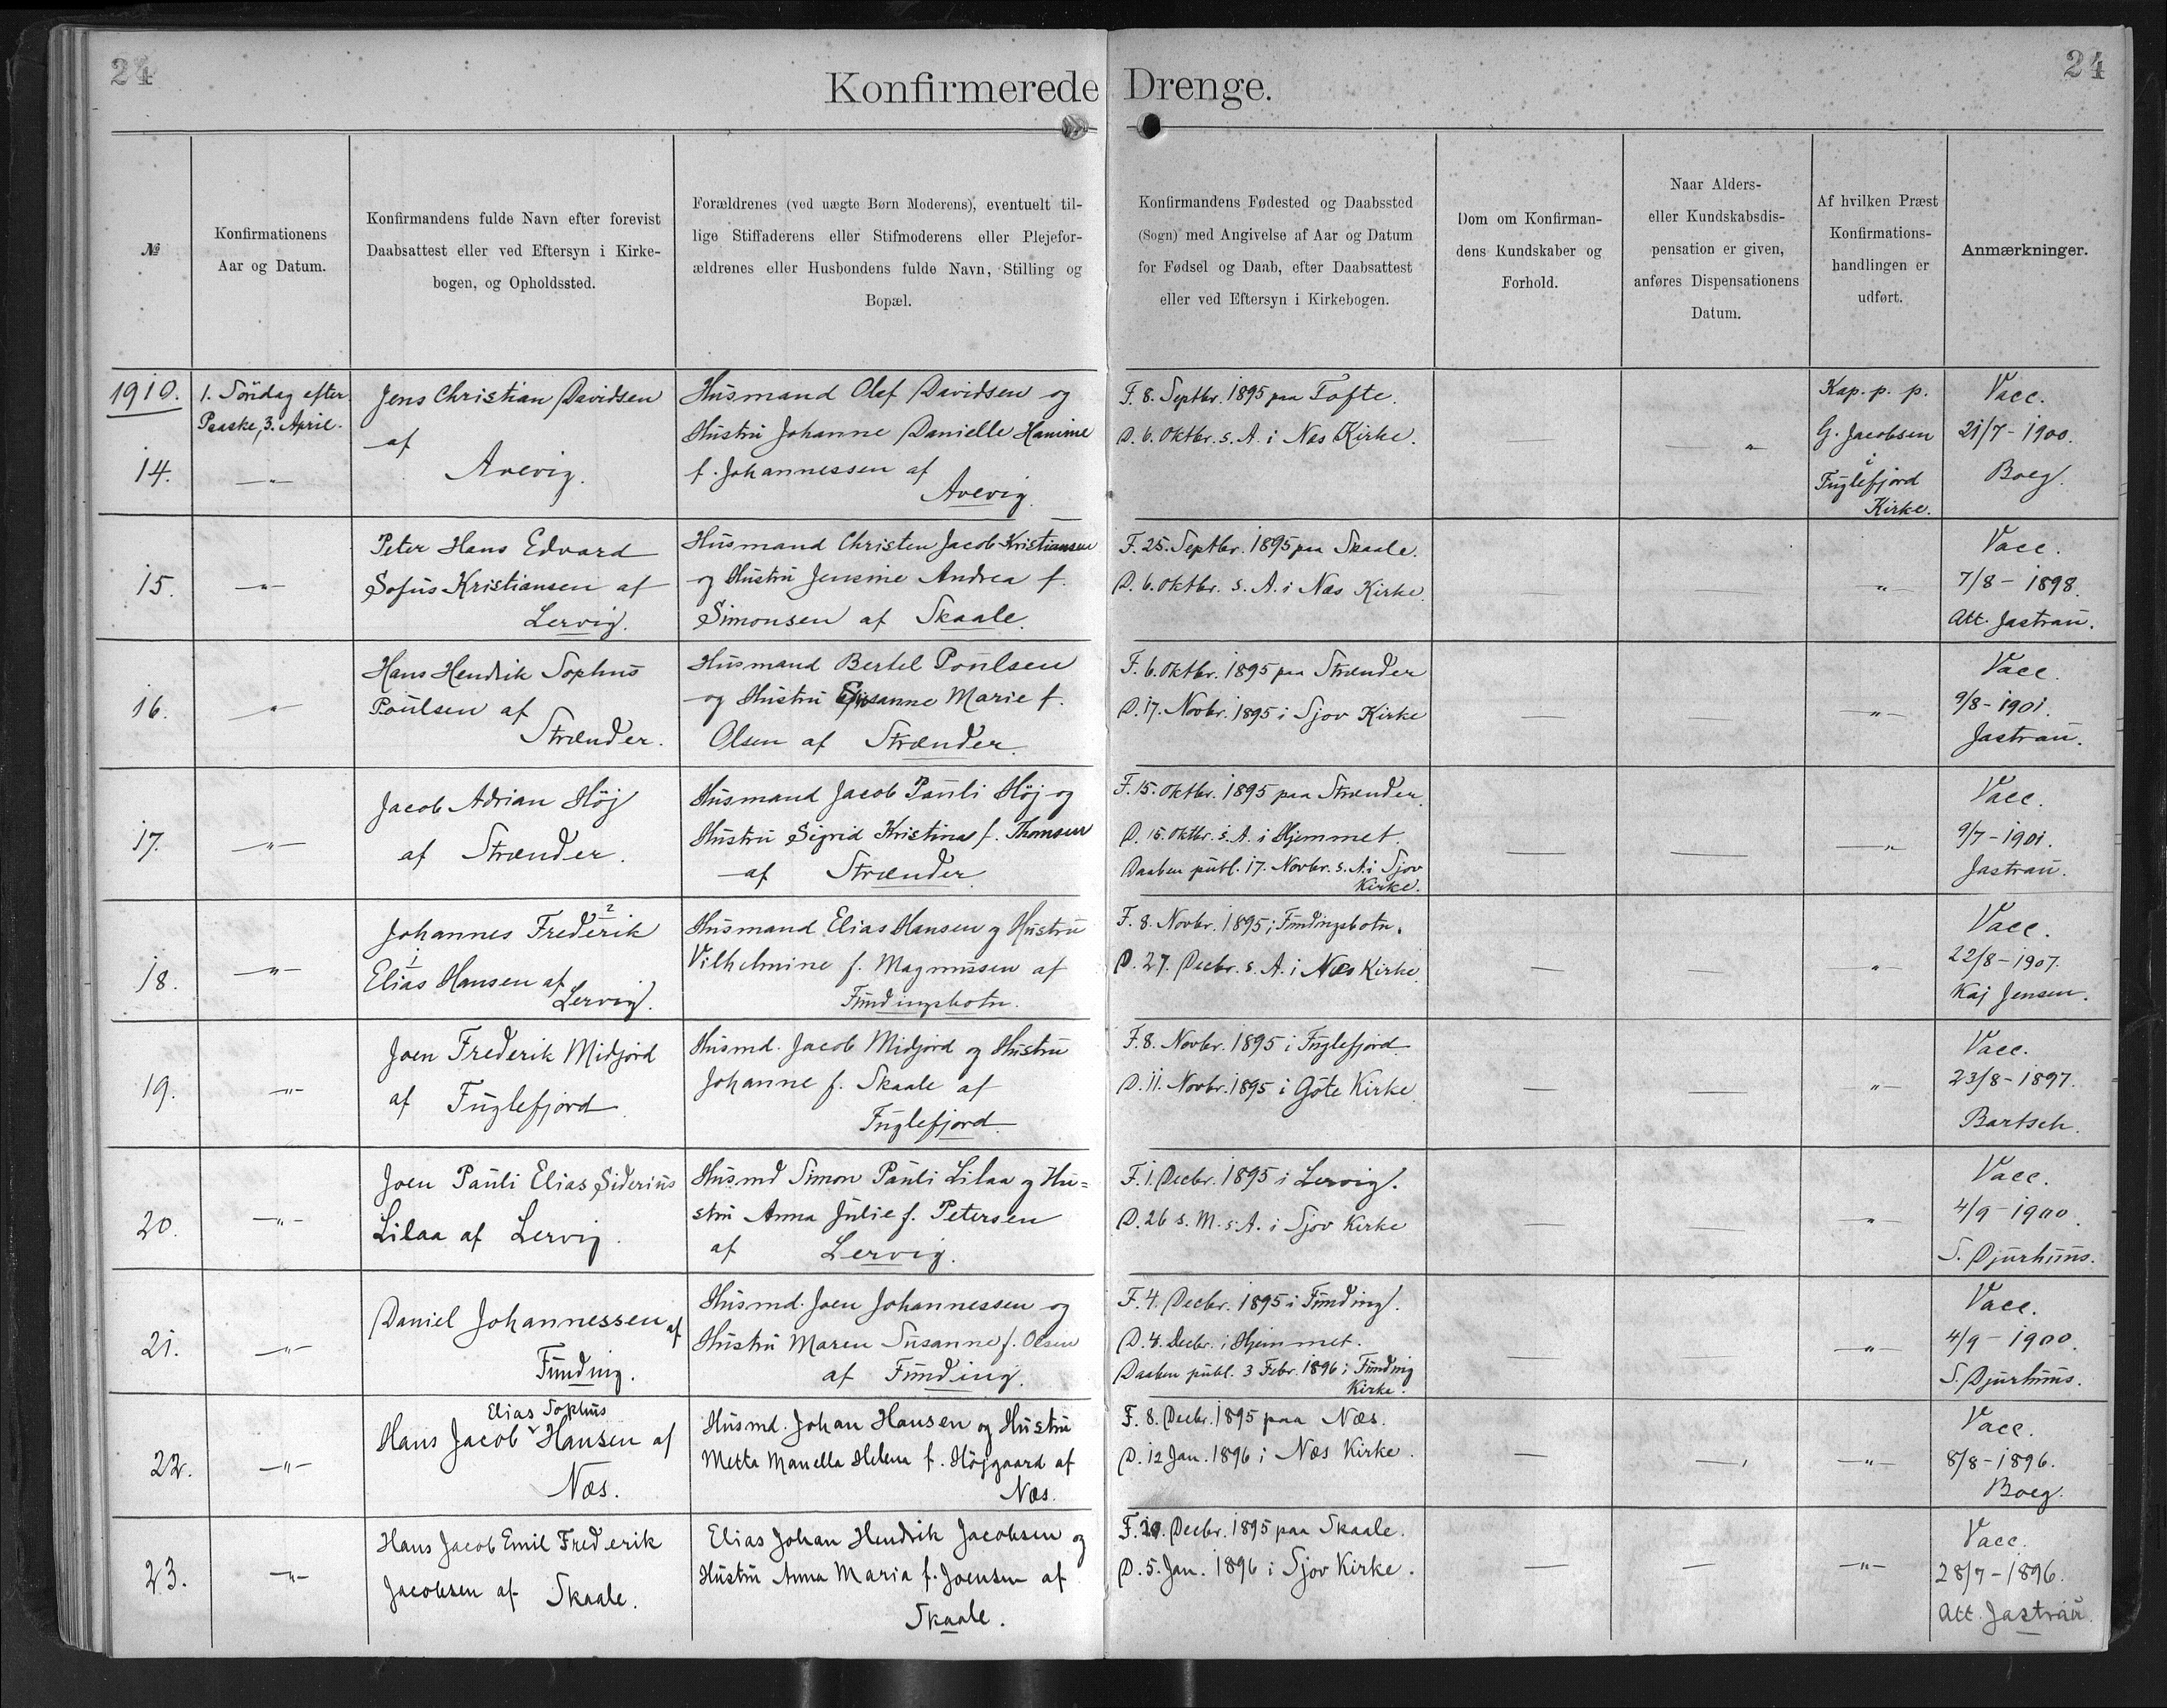 24
24
Konfirmerede Drenge.
№
Konfirmationens
Aar og Datum.
Konfirmandens fulde Navn efter forevist
Daabsattest eller ved Eftersyn i Kirke-
bogen, og Opholdssted.
Forældrenes (ved uægte Børn Moderens), eventuelt til-
lige Stiffaderens eller Stifmoderens eller Plejefor-
ældrenes eller Husbondens fulde Navn, Stilling og
Bopæl.
Konfirmandens Fødested og Daabssted
(Sogn) med Angivelse af Aar og Datum
for Fødsel og Daab, efter Daabsattest
eller ved Eftersyn i Kirkebogen.
Dom om Konfirman-
dens Kundskaber og
Forhold.
Naar Alders-
eller Kundskabsdis-
pensation er given,
anføres Dispensationens
Datum.
Af hvilken Præst
Konfirmations-
handlingen er
udført.
Anmærkninger.
1910.
14.
1. Söndag efter
Paaske, 3. April.
— " —
Jens Christian Davidsen
af
Arevig.
Husmand Olaf Davidsen og
Hustru Johanne Danielle Hanine
f. Johannessen af
Arevig.
F. 8. Septbr. 1895 paa Tofte.
D. 6. Oktbr. s. A. i Næs Kirke.
—
— "
Kap. p. p.
G. Jacobsen
i
Fuglefjord
Kirke.
Vacc.
21/7 - 1900.
Boeg.
15.
— " —
Peter Hans Edvard
Sofus Kristiansen af
Lervig.
Husmand Christen Jacob Kristiansen
og Hustru Jensine Andrea f.
Simonsen af Skaale.
F. 25. Septbr. 1895 paa Skaale.
D. 6. Oktbr. s. A. i Næs Kirke.
—
—
" —
Vacc.
7/8 - 1898.
Att. Jastrau.
16.
— " —
Hans Hendrik Sophus
Poulsen af
Strænder.
Husmand Bertel Poulsen
og Hustru Susanne Marie f.
Olsen af Strænder.
F. 6. Oktbr. 1895 paa Strænder
D. 17. Novbr. 1895 i Sjov Kirke
—
—
— " —
Vacc.
9/8 - 1901.
Jastrau.
17.
— " —
Jacob Adrian Höj
af Strænder.
Husmand Jacob Pauli Höj og
Hustru Sigrid Kristina f. Thomsen
af Strænder.
F. 15. Oktbr. 1895 paa Strænder.
D. 15. Oktbr. s. A. i Hjemmet.
Daaben publ. 17. Novbr. s. A. i Sjov
Kirke.
—
—
— " —
Vacc.
9/7 - 1901.
Jastrau.
18.
— " —
2
Johannes Frederik
1
Elias Hansen af
Lervig.
Husmand Elias Hansen og Hustru
Vilhelmine f. Magnussen af
Fundingsbotn.
F. 8. Novbr. 1895 i Fundingsbotn.
D. 27. Decbr. s. A. i Næs Kirke.
—
—
"
Vacc.
22/8 - 1907.
Kaj Jensen.
19.
— " —
Joen Frederik Midjord
af Fuglefjord.
Husmd. Jacob Midjord og Hustru
Johanne f. Skaale af
Fuglefjord.
F. 8. Novbr. 1895 i Fuglefjord.
D. 11. Novbr. 1895 i Göte Kirke.
—
—
" —
Vacc.
23/8 - 1897.
Bartsch.
20.
— " —
Joen Pauli Elias Siderius
Lilaa af Lervig.
Husmd Simon Pauli Lilaa og Hu=
stru Anna Julie f. Petersen
af Lervig.
F. 1. Decbr. 1895 i Lervig.
D. 26 s. M. s. A. i Sjov Kirke
—
—
"
Vacc.
4/9 - 1900.
S. Djurhuus.
21.
— " —
Daniel Johannessen af
Funding.
Husmd. Joen Johannessen og
Hustru Maren Susanne f. Olsen
af Funding.
F. 4. Decbr. 1895 i Funding.
D. 4. Decbr. i Hjemmet.
Daaben publ. 3 Febr. 1896 i Funding
Kirke.
—
—
— " —
Vacc.
4/9 - 1900.
S. Djurhuus.
22.
— " —
Elias Sophus
Hans Jacob Hansen af
Næs.
Husmd. Johan Hansen og Hustru
Metta Manella Helena f. Höjgaard af
Næs.
F. 8. Decbr. 1895 paa Næs.
D. 12 Jan. 1896 i Næs Kirke.
—
—
— " —
Vacc.
8/8 - 1896.
Boeg.
23.
— " —
Hans Jacob Emil Frederik
Jacobsen af Skaale.
Elias Johan Hendrik Jacobsen og
Hustru Anna Maria f. Joensen af
Skaale.
Decbr. 1895 paa Skaale.
D. 5. Jan. 1896 i Sjov Kirke.
—
—
— " —
Vacc.
28/7 - 1896.
Att. Jastrau.